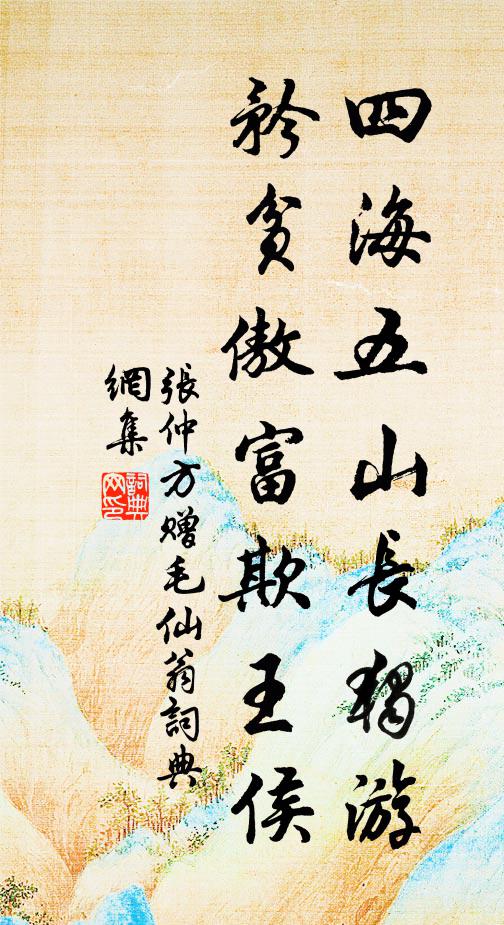 四海五山長獨游
矜貧傲富欺王侯
張仲方贈毛仙翁詞典
網集
詞典
网印